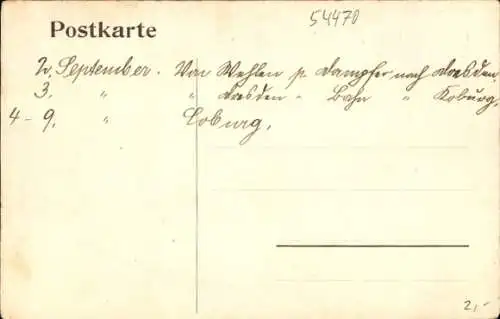 54470
Postkarte
2. September. Von Wehlen p. Dampfer nach Dresden.
3. " " Dresden " Bahn " Koburg.
4 - 9. " Coburg.
2,-